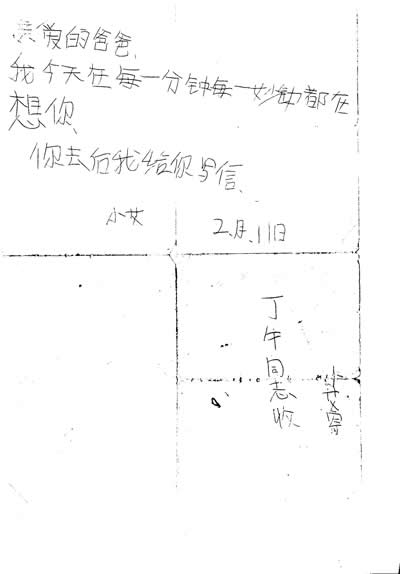 亲爱的爸爸、
我今天在每一分钟每一妙钟都在
想你、
你去后我给你写信、
小女 2.月.11日
丁午同志收
小艾寄